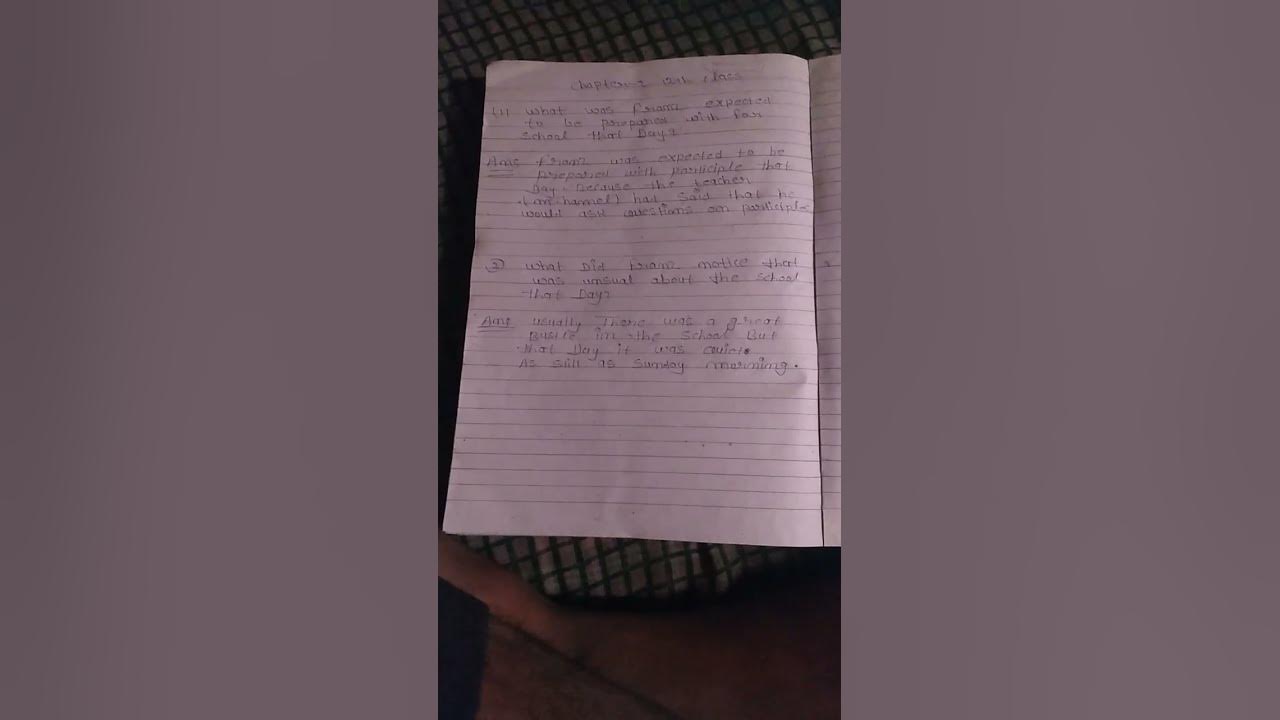 Chapter-1 12th class
(1) What was Franz expected
to be prepared with for
School that Day?
Ans Franz was expected to be
prepared with participle that
Day. Because the teacher
(M. hamel) had said that he
would ask questions on participles
② What Did Franz notice that
was unsual about the school
that Day?
Ans usually There was a great
Bustle in the School But
that Day it was quiet.
As still as Sunday morning.